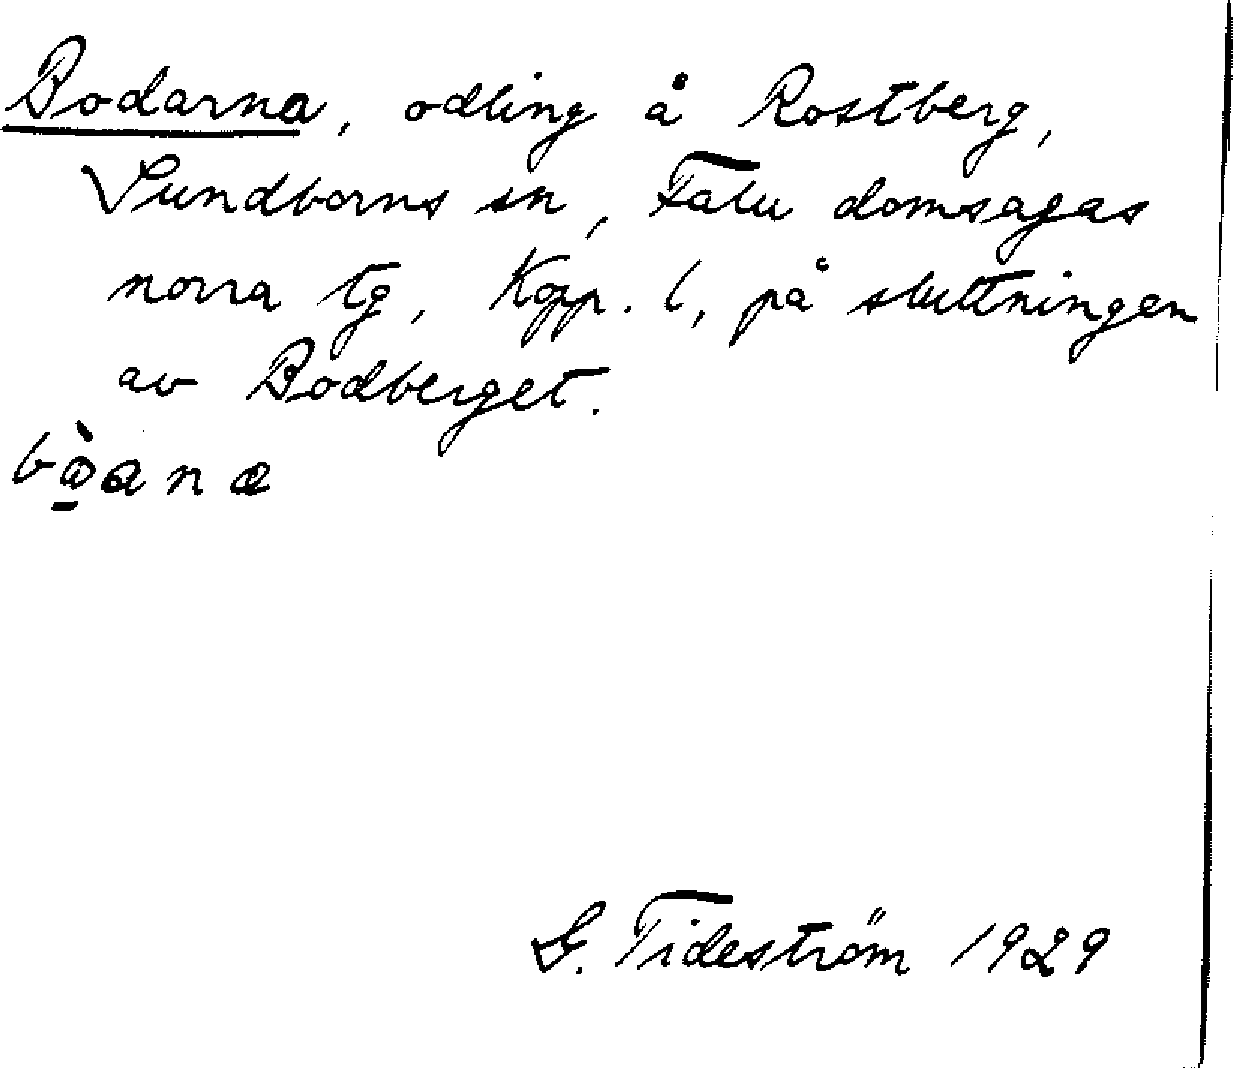 Bodarna, odling å Rostberg,
Sundborns sn, Falu domsagas
norra tg, Kopp. l, på sluttningen
av Bodberget.
G. Tideström 1929